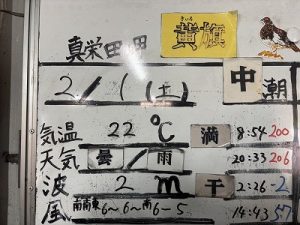 きいろ
真栄田岬 黄旗
2/1(土) 中潮
気温 22℃ 満 8:54 200
天気 曇/雨 20:33 206
波 2m 干 2:26 -2
風 南南東6〜6〜南6-5 14:43 57